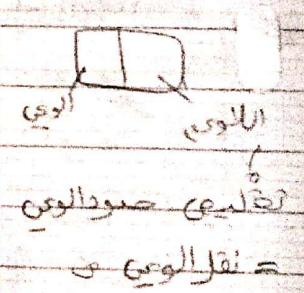 الوعي اللاوعي
تقليص حدود الوعي
= نقل الوعي من